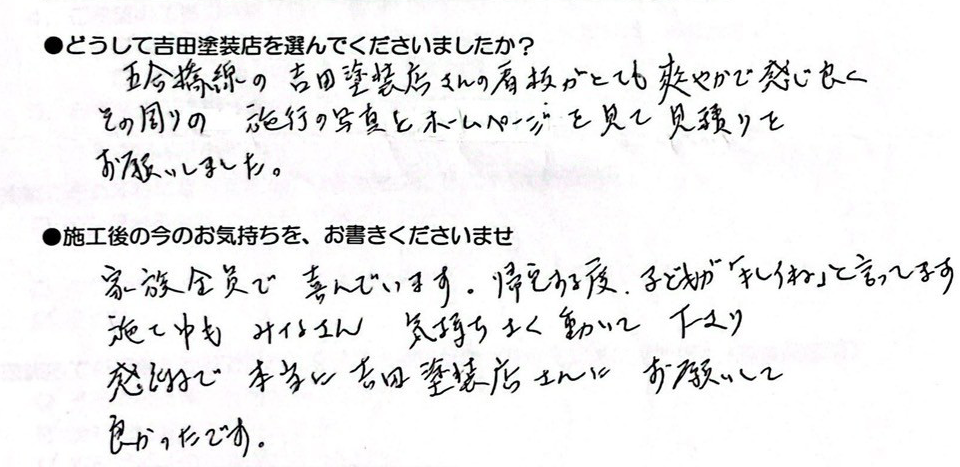 ●どうして吉田塗装店を選んでくださいましたか?
五合橋線の 吉田塗装店さんの看板がとても爽やかで感じ良く
その周りの 施行の写真とホームページを見て見積りを
お願いしました。
●施工後の今のお気持ちを、お書きくださいませ
家族全員で 喜んでいます。帰宅する度、子どもが「キレイね」と言ってます
施工中も みなさん 気持ちよく動いて下さり
感謝で 本当に吉田塗装店さんに お願いして
良かったです。